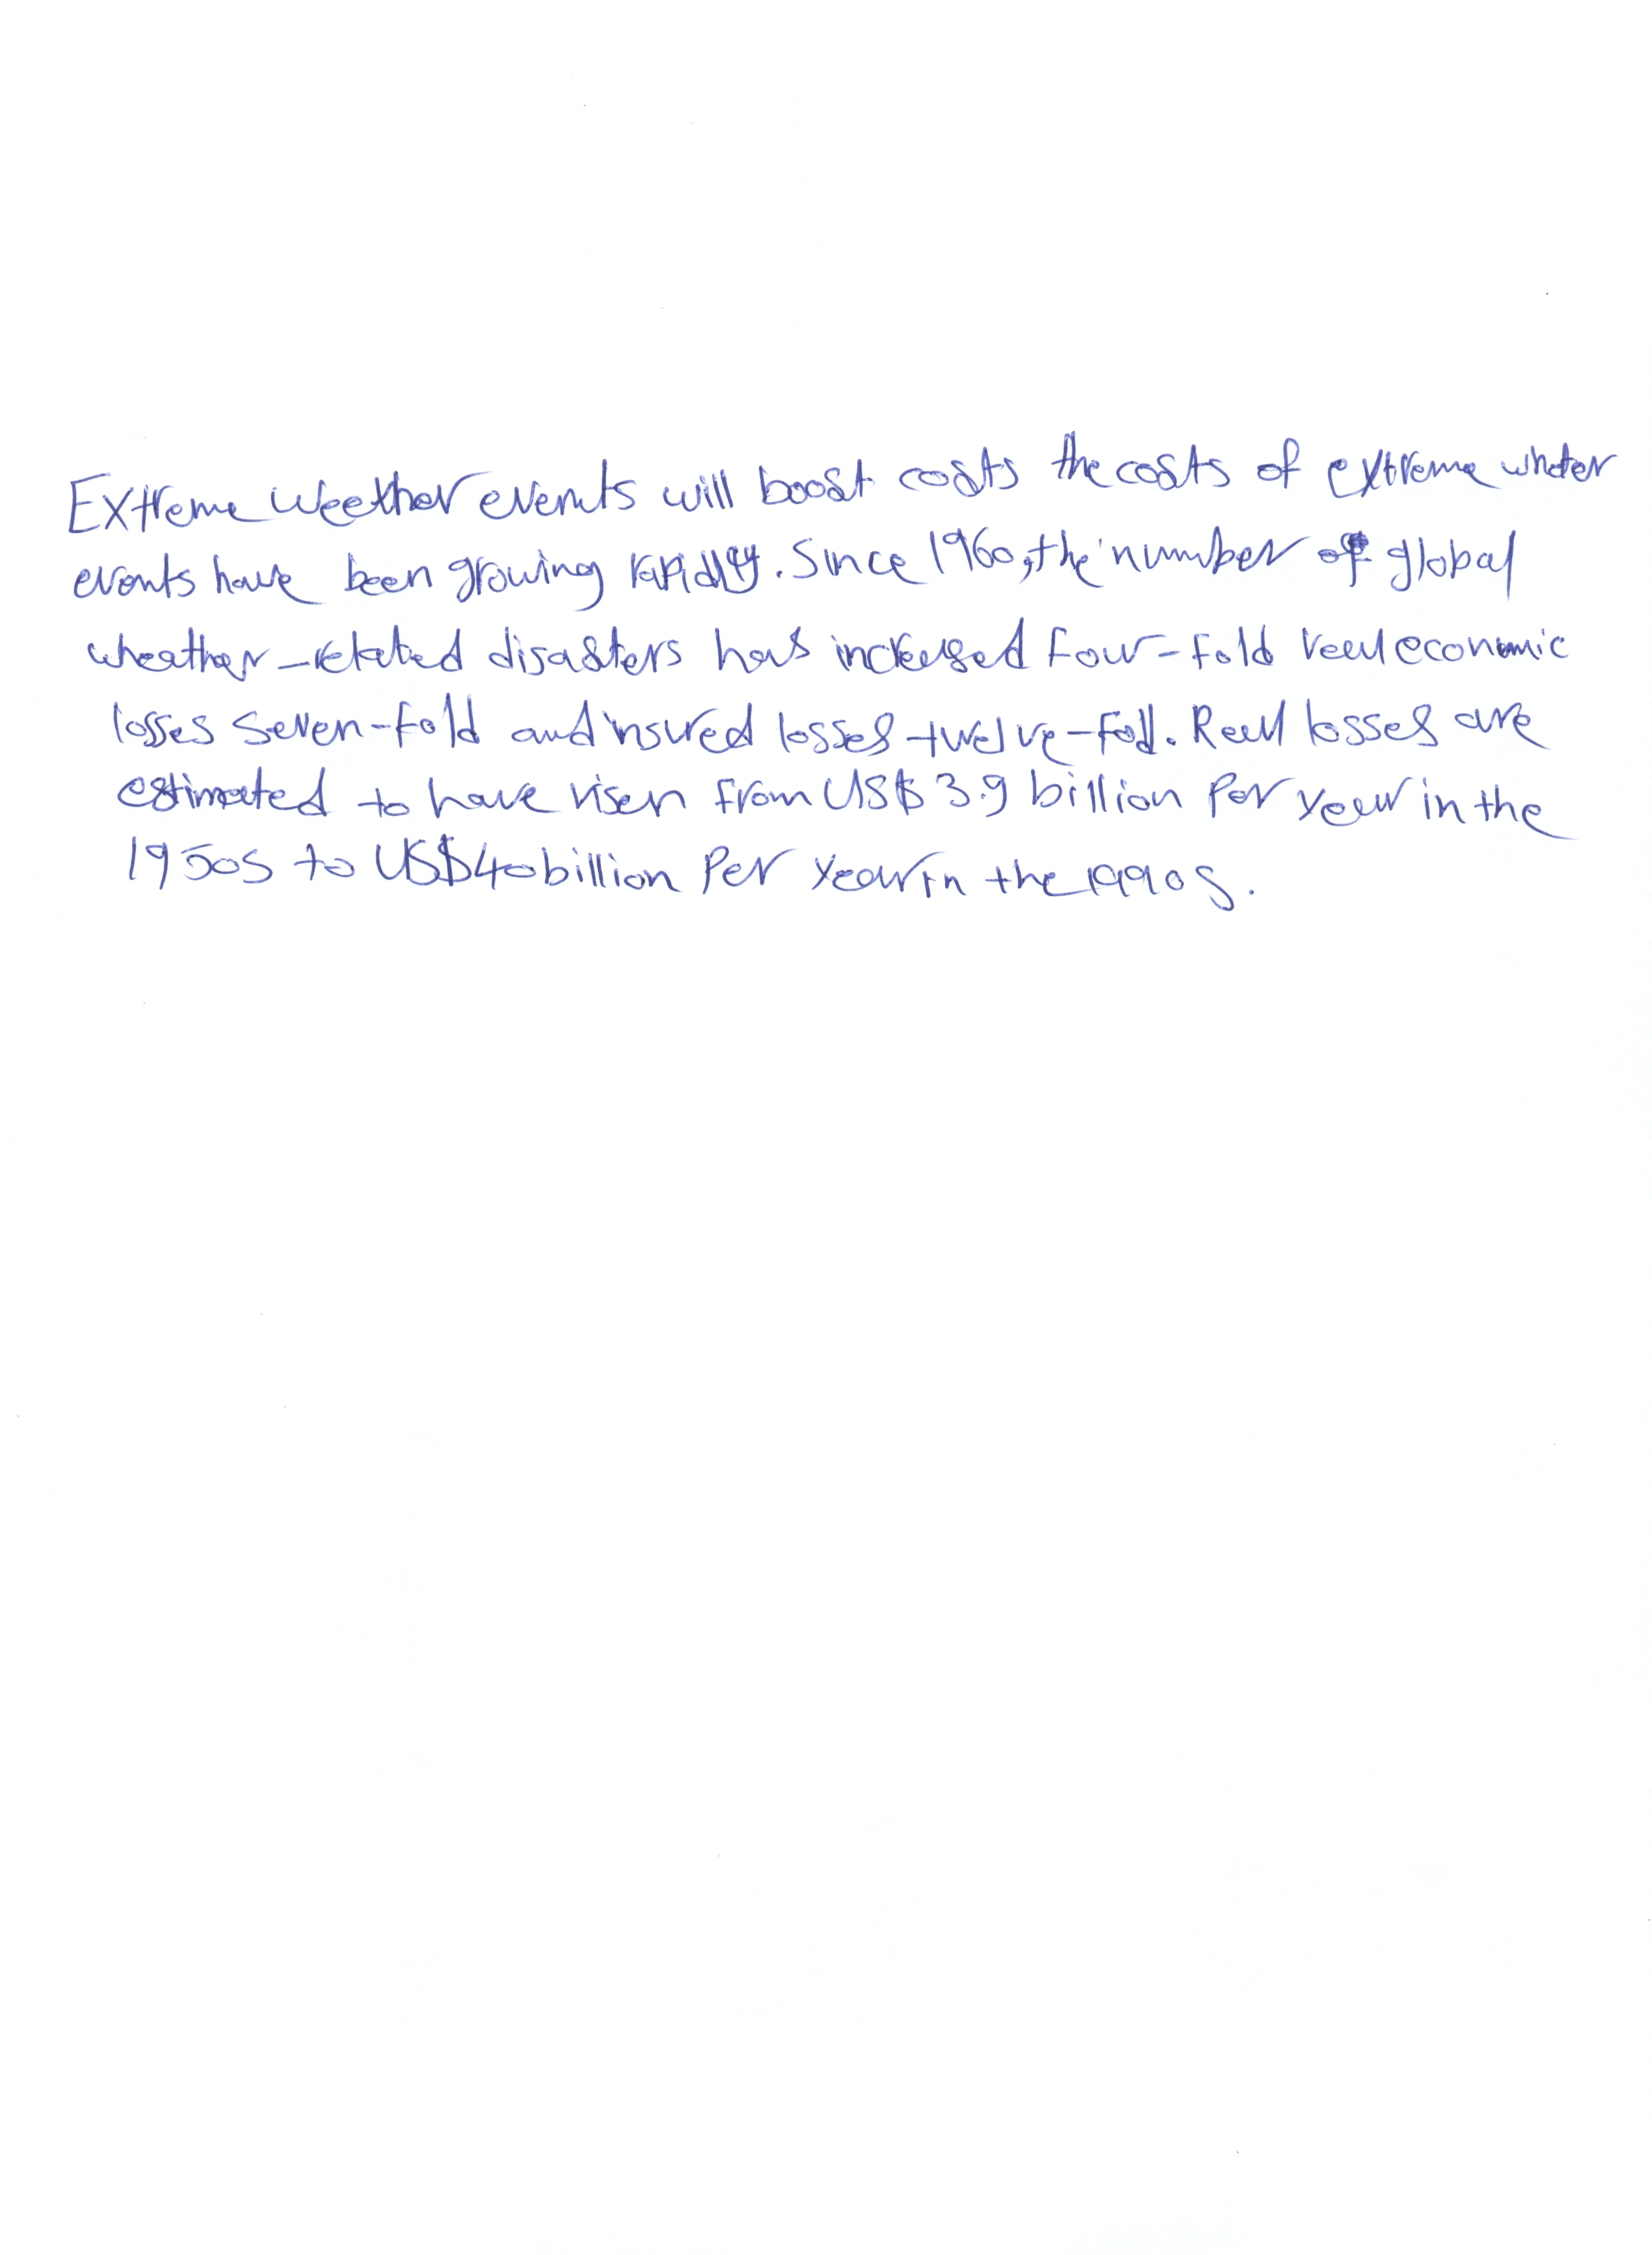 Extreme weether events will boost costs the costs of extreme wheter
events have been growing rapidly. Since 1960, the number of global
wheather-related disasters has increased four-fold real economic
losses seven-fold and insured losses twelve-fold. Real losses are
estimated to have risen from US$ 3.9 billion per year in the
1950s to US$40 billion per year in the 1990s.